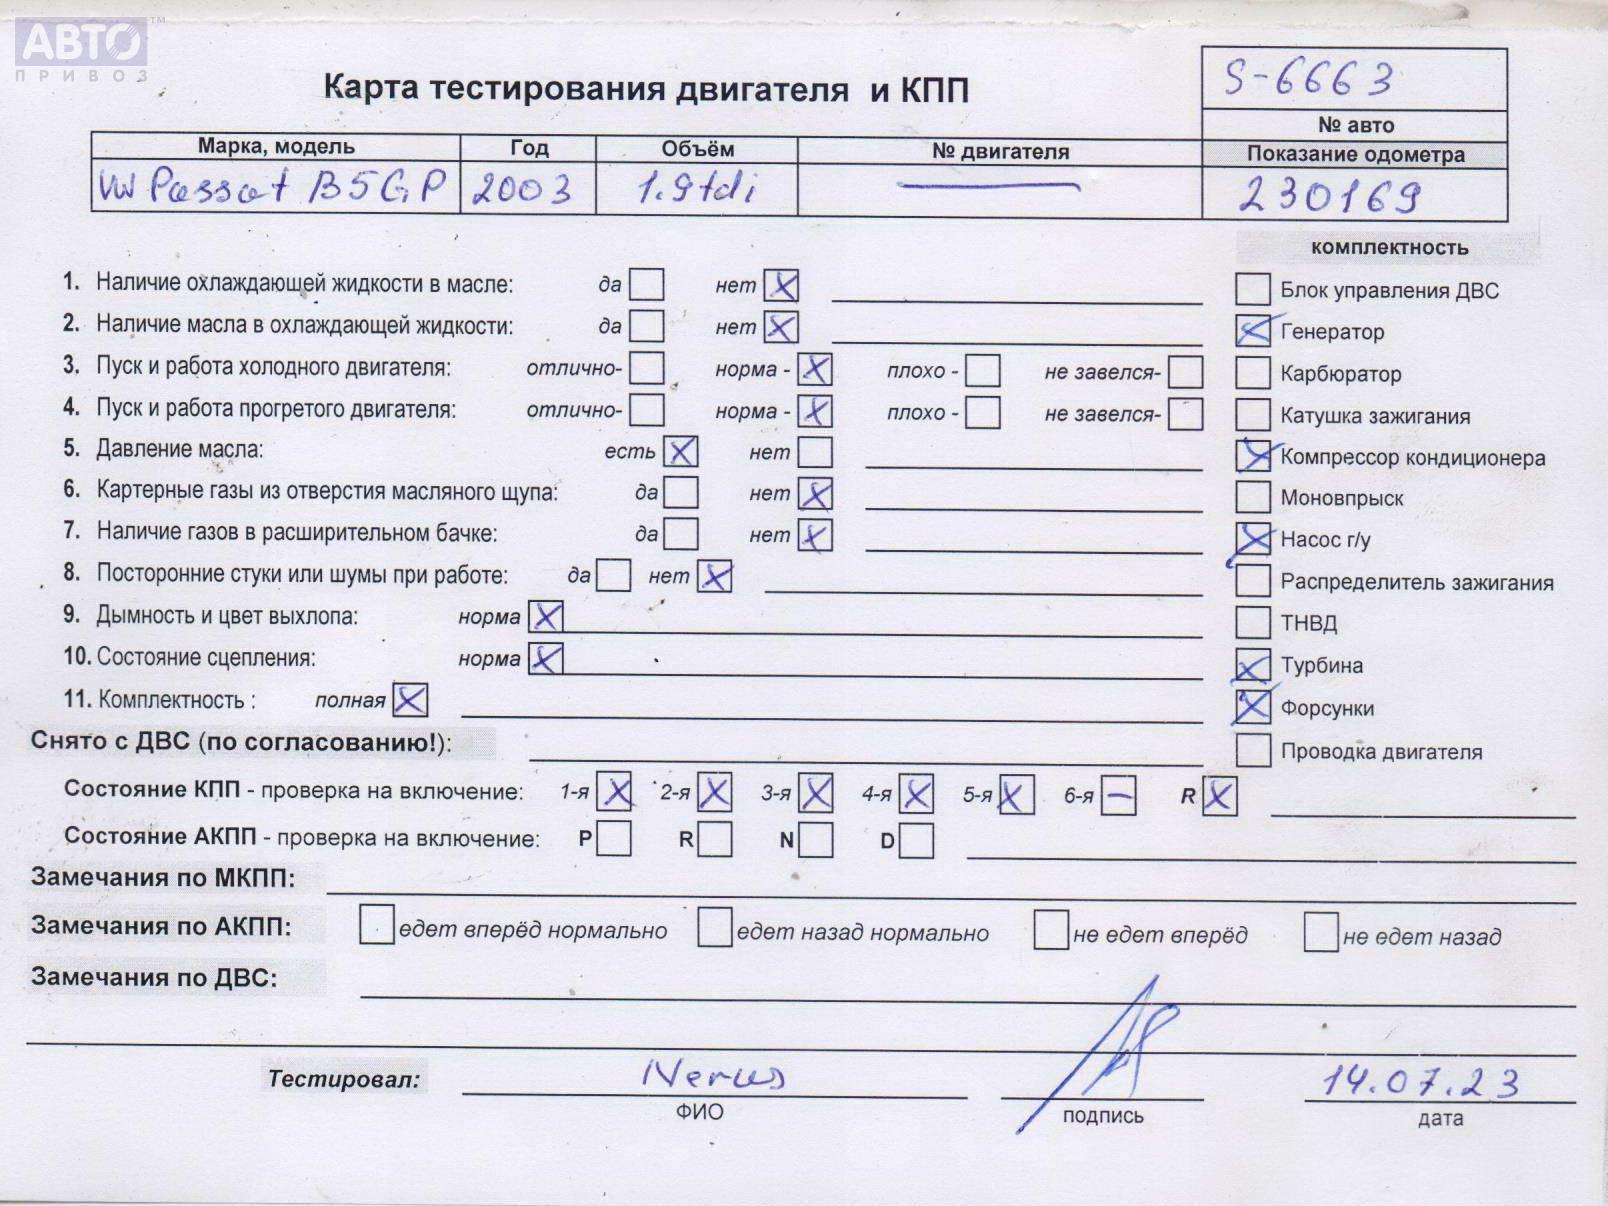 АВТО™
ПРИВОЗ
Карта тестирования двигателя и КПП
S-6663
№ авто
Марка, модель Год Объём № двигателя Показание одометра
VW Passat B5GP 2003 1.9tdi — 230169
комплектность
1. Наличие охлаждающей жидкости в масле: да нет X
Блок управления ДВС
2. Наличие масла в охлаждающей жидкости: да нет X
X Генератор
3. Пуск и работа холодного двигателя: отлично- норма - X плохо - не завелся-
Карбюратор
4. Пуск и работа прогретого двигателя: отлично- норма - X плохо - не завелся-
Катушка зажигания
5. Давление масла: есть X нет
X Компрессор кондиционера
6. Картерные газы из отверстия масляного щупа: да нет X
Моновпрыск
7. Наличие газов в расширительном бачке: да нет X
X Насос г/у
8. Посторонние стуки или шумы при работе: да нет X
Распределитель зажигания
9. Дымность и цвет выхлопа: норма X
ТНВД
10. Состояние сцепления: норма X
X Турбина
11. Комплектность : полная X
X Форсунки
Снято с ДВС (по согласованию!):
Проводка двигателя
Состояние КПП - проверка на включение: 1-я X 2-я X 3-я X 4-я X 5-я X 6-я — R X
Состояние АКПП - проверка на включение: P R N D
Замечания по МКПП:
Замечания по АКПП: едет вперёд нормально едет назад нормально не едет вперёд не едет назад
Замечания по ДВС:
Тестировал: 14.07.23
ФИО подпись дата